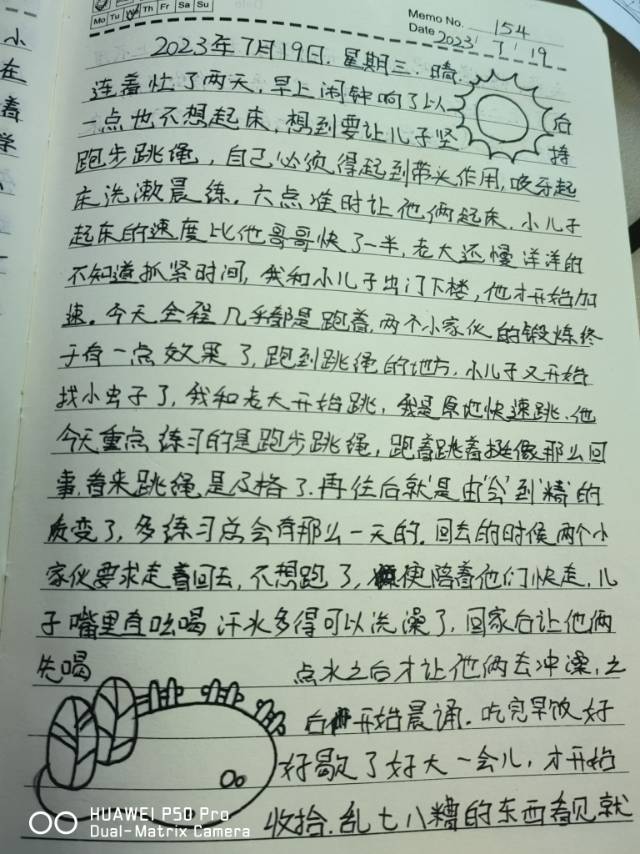 小
在
着
学
Mo Tu Th Fr Sa Su
Memo No. 154
Date 2023/ 7 / 19
2023年7月19日. 星期三. 晴
连着忙了两天, 早上闹钟响了以后
一点也不想起床, 想到要让儿子坚持
跑步跳绳, 自己必须得起到带头作用, 咬牙起
床洗漱晨练. 六点准时让他俩起床. 小儿子
起床的速度比他哥哥快了一半, 老大还慢洋洋的
不知道抓紧时间, 我和小儿子出门下楼, 他才开始加
速. 今天全程几乎都是跑着, 两个小家伙的锻炼终
于有一点效果了, 跑到跳绳的地方, 小儿子又开始
找小虫子了, 我和老大开始跳, 我是原地快速跳. 他
今天重点练习的是跑步跳绳, 跑着跳着挺像那么回
事, 看来跳绳是及格了. 再往后就是由'会'到'精'的
质变了, 多练习总会有那么一天的. 回去的时候两个小
家伙要求走着回去, 不想跑了, 便陪着他们快走, 儿
子嘴里直吆喝汗水多得可以洗澡了, 回家后让他俩
先喝点水之后才让他俩去冲澡, 之
后开始晨诵. 吃完早饭好
好歇了好大一会儿, 才开始
收拾. 乱七八糟的东西看见就
HUAWEI P50 Pro
Dual-Matrix Camera